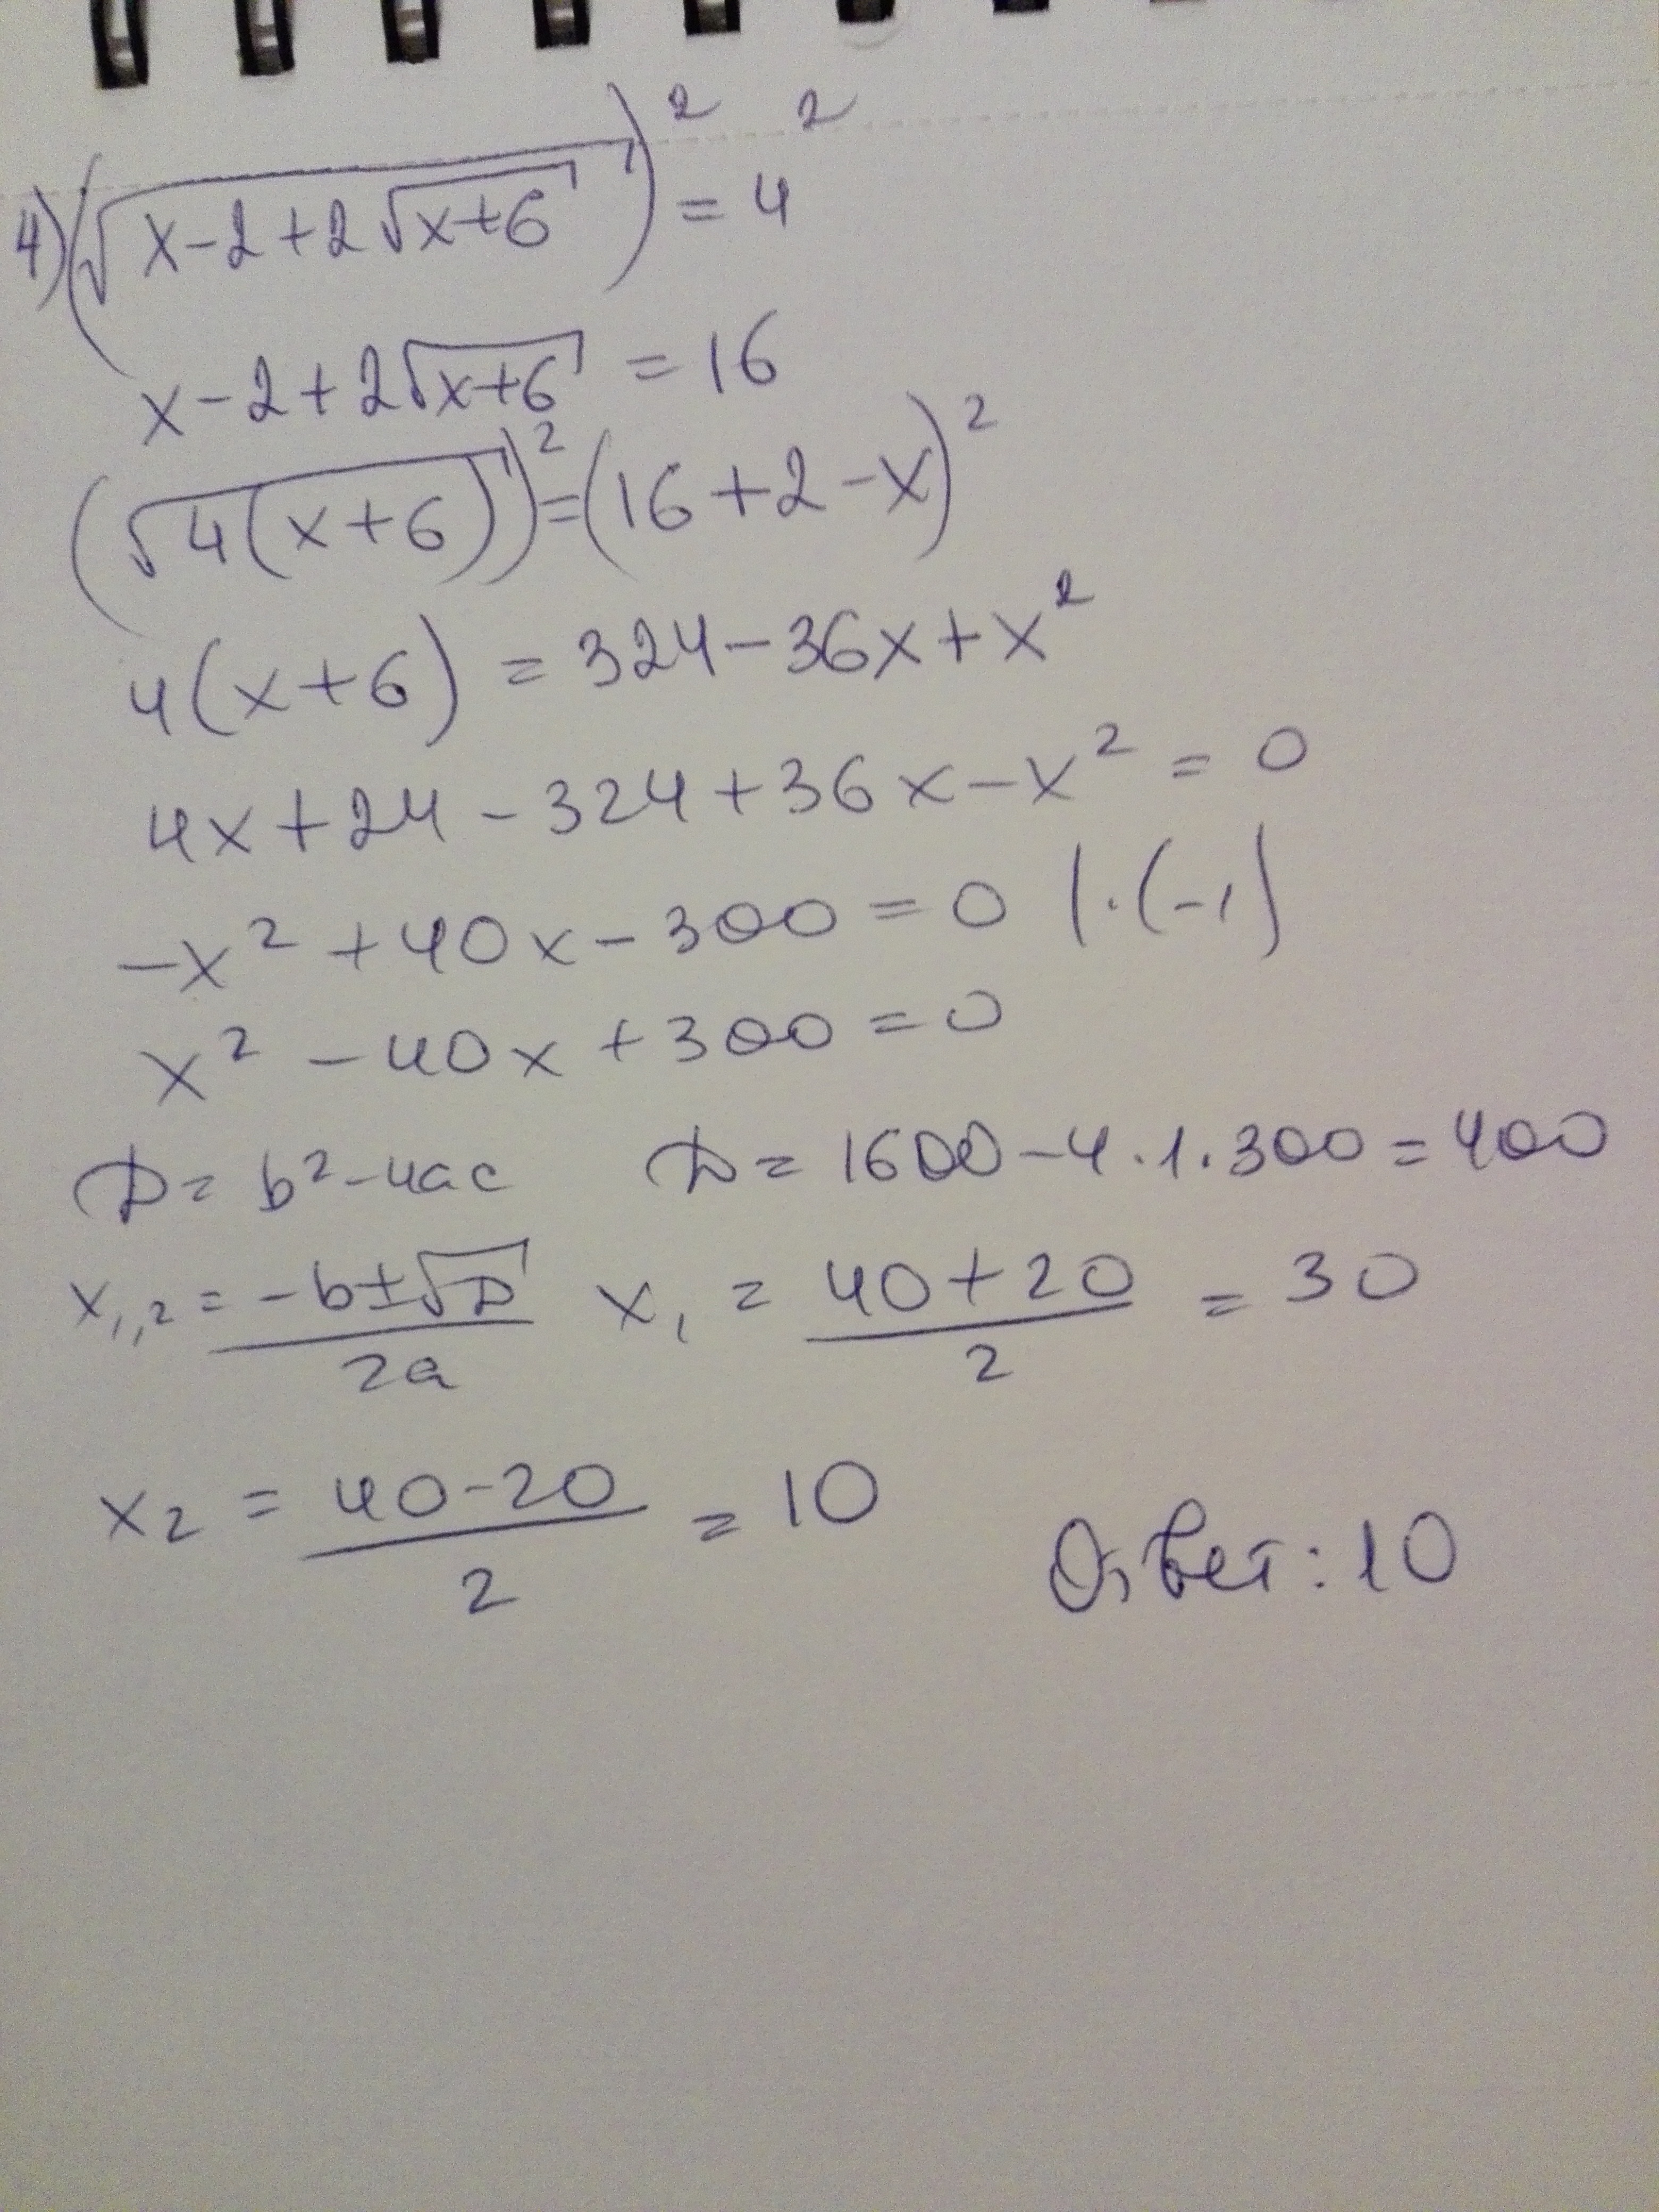 4) (√(x-2+2√(x+6)))² = 4²
x-2+2√(x+6) = 16
(√(4(x+6)))² = (16+2-x)²
4(x+6) = 324-36x+x²
4x+24-324+36x-x² = 0
-x²+40x-300=0 |·(-1)
x²-40x+300=0
D= b²-4ac D= 1600-4·1·300=400
x₁,₂ = (-b±√D)/2a x₁ = (40+20)/2 = 30
x₂ = (40-20)/2 = 10 Ответ: 10